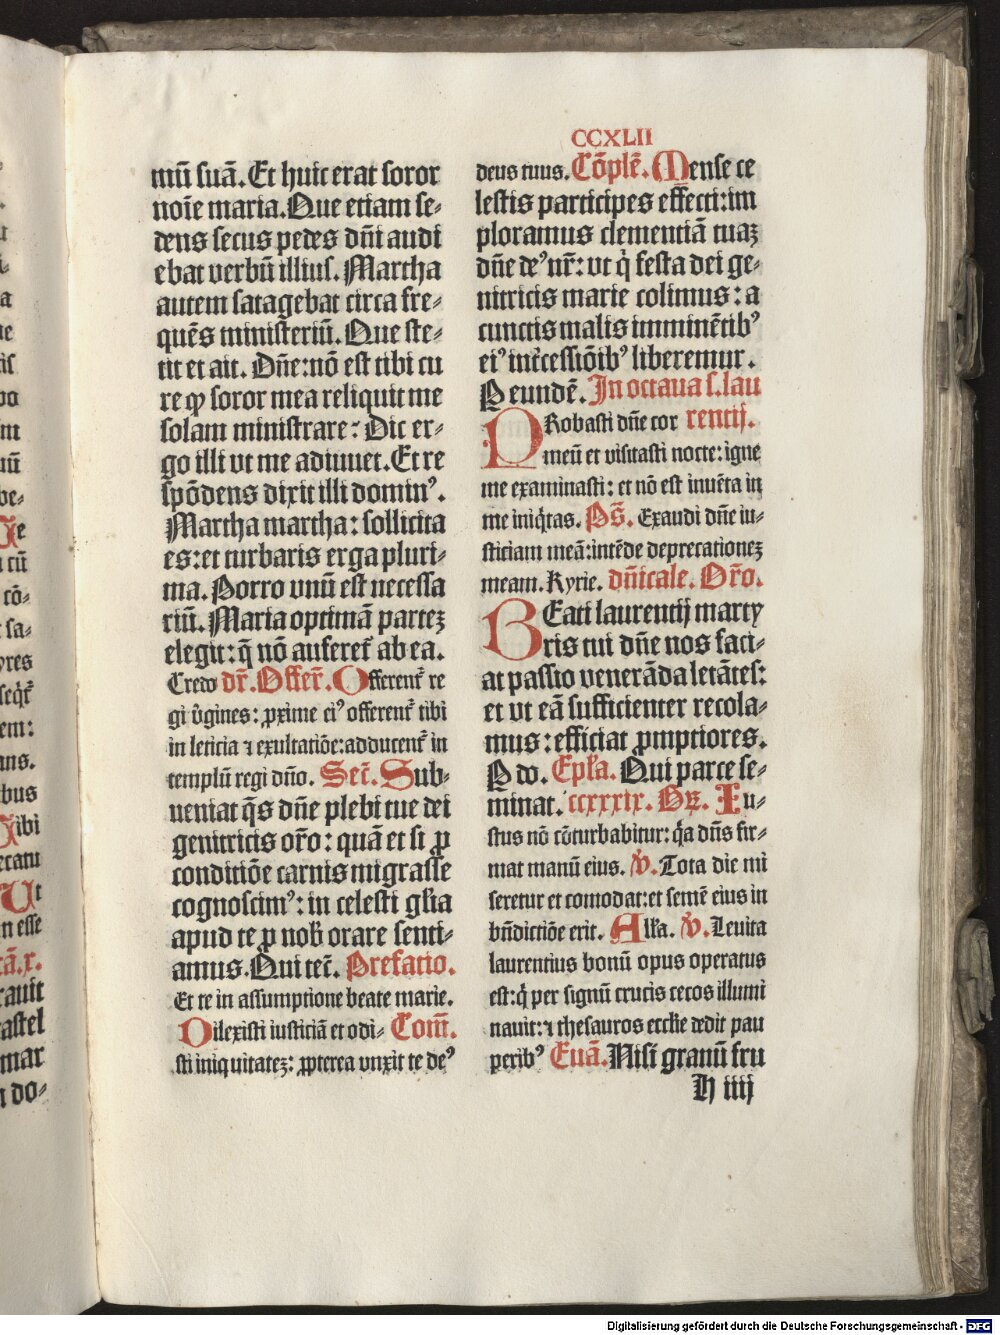 CCXLII
mū suā. Et huic erat soror
noīe maria. Que etiam se-
dens secus pedes dn̄i audi
ebat verbū illius. Martha
autem satagebat circa fre-
quēs ministeriū. Que ste-
tit et ait. Dn̄e: nō est tibi cu
re ꝙ soror mea reliquit me
solam ministrare: Dic er-
go illi vt me adiuuet. Et re
spōdens dixit illi dominꝰ.
Martha martha: sollicita
es: et turbaris erga pluri-
ma. Porro vnū est necessa
riū. Maria optimā parteꝫ
elegit: q̄ nō auferet᷑ ab ea.
Credo dr̄. Offer̄. Offerent᷑ re
gi v̄gines: ꝓxime eiꝰ offerent᷑ tibi
in leticia ⁊ exultatiōe: adducent᷑ in
templū regi dn̄o. Secr̄. Sub-
ueniat q̄s dn̄e plebi tue dei
genitricis or̄o: quā et si ꝓ
conditiōe carnis migrasse
cognoscimꝰ: in celesti gl̄ia
apud te ꝓ nob̄ orare senti-
amus. Qui tec̄. Prefatio.
Et te in assumptione beate marie.
Dilexisti iusticiā et odi- Com̄.
sti iniquitateꝫ: ꝓpterea vnxit te deꝰ
deus tuus. Cōplē. Mense ce
lestis participes effecti: im
ploramus clementiā tuaꝫ
dn̄e deꝰ nr̄: vt qͥ festa dei ge-
nitricis marie colimus: a
cunctis malis imminētibꝰ
eiꝰ intͨessiōibꝰ liberemur.
P eundē. In octaua s. lau
PRobasti dn̄e cor rentij.
meū et visitasti nocte: igne
me examinasti: et nō est inuēta in
me iniqͥtas. Ps̄. Exaudi dn̄e iu-
sticiam meā: intēde deprecationeꝫ
meam. Kyrie. dn̄icale. Or̄o.
BEati laurentij marty
ris tui dn̄e nos faci-
at passio venerāda letātes:
et vt eā sufficienter recola-
mus: efficiat ꝓmptiores.
P do. Epl̄a. Qui parce se-
minat. ccxxxix. Gꝝ. Iu-
stus nō cōturbabitur: qͣ dn̄s fir-
mat manū eius. v̄. Tota die mi
seretur et comodat: et semē eius in
bn̄dictiōe erit. All̄a. v̄. Leuita
laurentius bonū opus operatus
est: qͥ per signū crucis cecos illumi
nauit: ⁊ thesauros eccl̄ie dedit pau
peribꝰ Euā. Nisi granū fru
h iiij
Digitalisierung gefördert durch die Deutsche Forschungsgemeinschaft - DFG